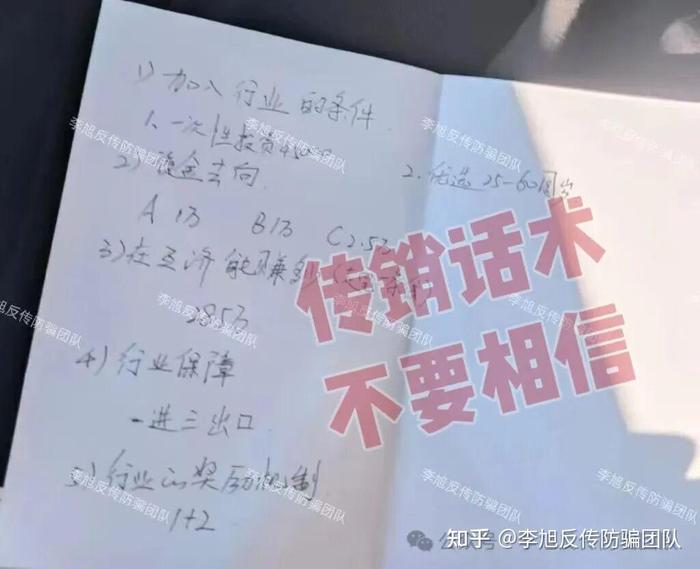 1) 加入行业的条件
1、一次性投资
2、优选 25-60周岁
2) 资金去向
A 1万 B 1万 C 2.5万
3) 在互济能赚多少
285万
4) 行业保障
一进三出口
5) 行业的奖励机制
1+2
传销话术
不要相信
李旭反传防骗团队
李旭反传防骗团队
李旭反传防骗团队
李旭反传防骗团队
李旭反传防骗团队
李旭反传防骗团队
李旭反传防骗团队
知乎 @李旭反传防骗团队